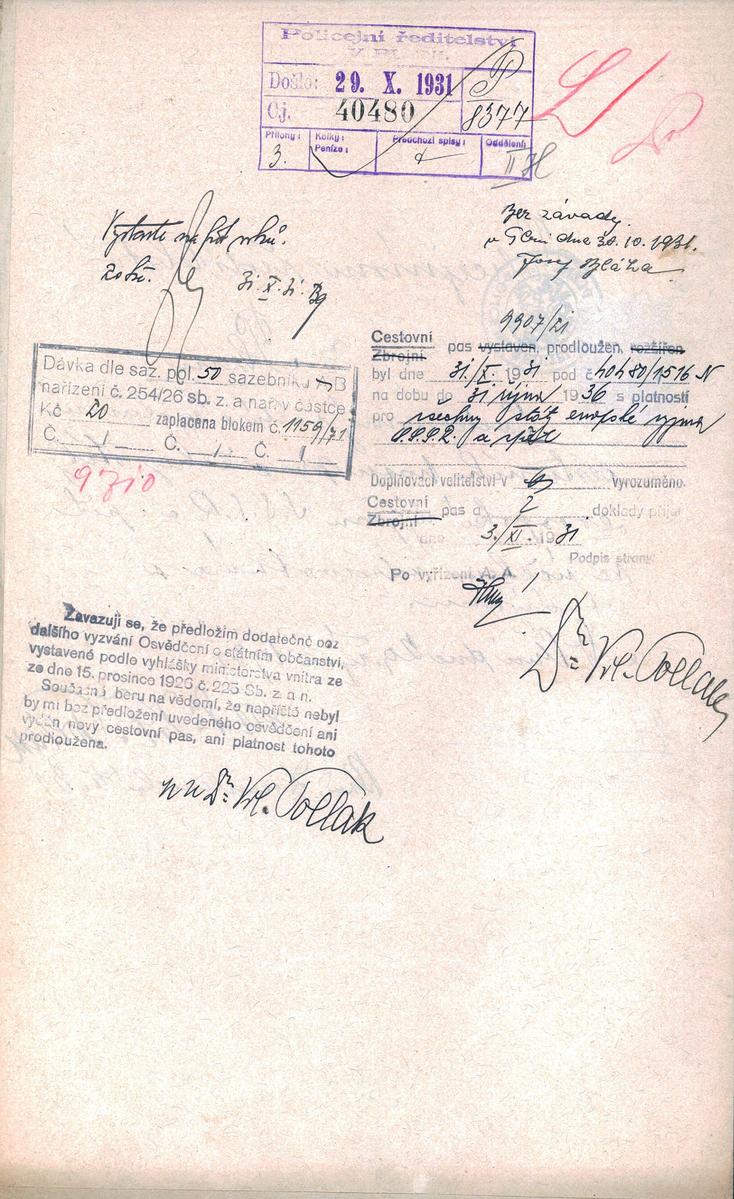 Policejní ředitelství
v Plzni.
Došlo: 29. X. 1931
Čj. 40480
P
8377
Přílohy: 3.
Kolky:
Peníze:
Předchozí spisy:
Oddělení: II
Bez závady.
v Plzni dne 30.10.1931.
Josef Bláha
Vystavte na pět roků.
31.X.31.
9907/31
Cestovní
Zbrojní pas vystaven, prodloužen, rozšířen
byl dne 31./X. 1931 pod č. 40480/1516 N
na dobu do 31 října 1936 s platností
pro všechny stát evropské vyjma
S.S.S.R. a
Doplňovací velitelství v vyrozuměno.
Cestovní
Zbrojní pas a 2 doklady přijal
dne 3./XI. 1931
Podpis strany:
Po vyřízení A. A.
Dr. Vil. Pollak
Dávka dle saz. pol. 50 sazebníku B
nařízení č. 254/26 sb. z. a nař. v částce
Kč 20 zaplacena blokem č. 1159/71
Č. / Č. / Č. /
9710
Zavazuji se, že předložím dodatečně bez
dalšího vyzvání Osvědčení o státním občanství,
vystavené podle vyhlášky ministerstva vnitra ze
ze dne 15. prosince 1926 č. 225 Sb. z. a n.
Současně beru na vědomí, že napříště nebyl
by mi bez předložení uvedeného osvědčení ani
vydán nový cestovní pas, ani platnost tohoto
prodloužena.
Dr. Vil. Pollak